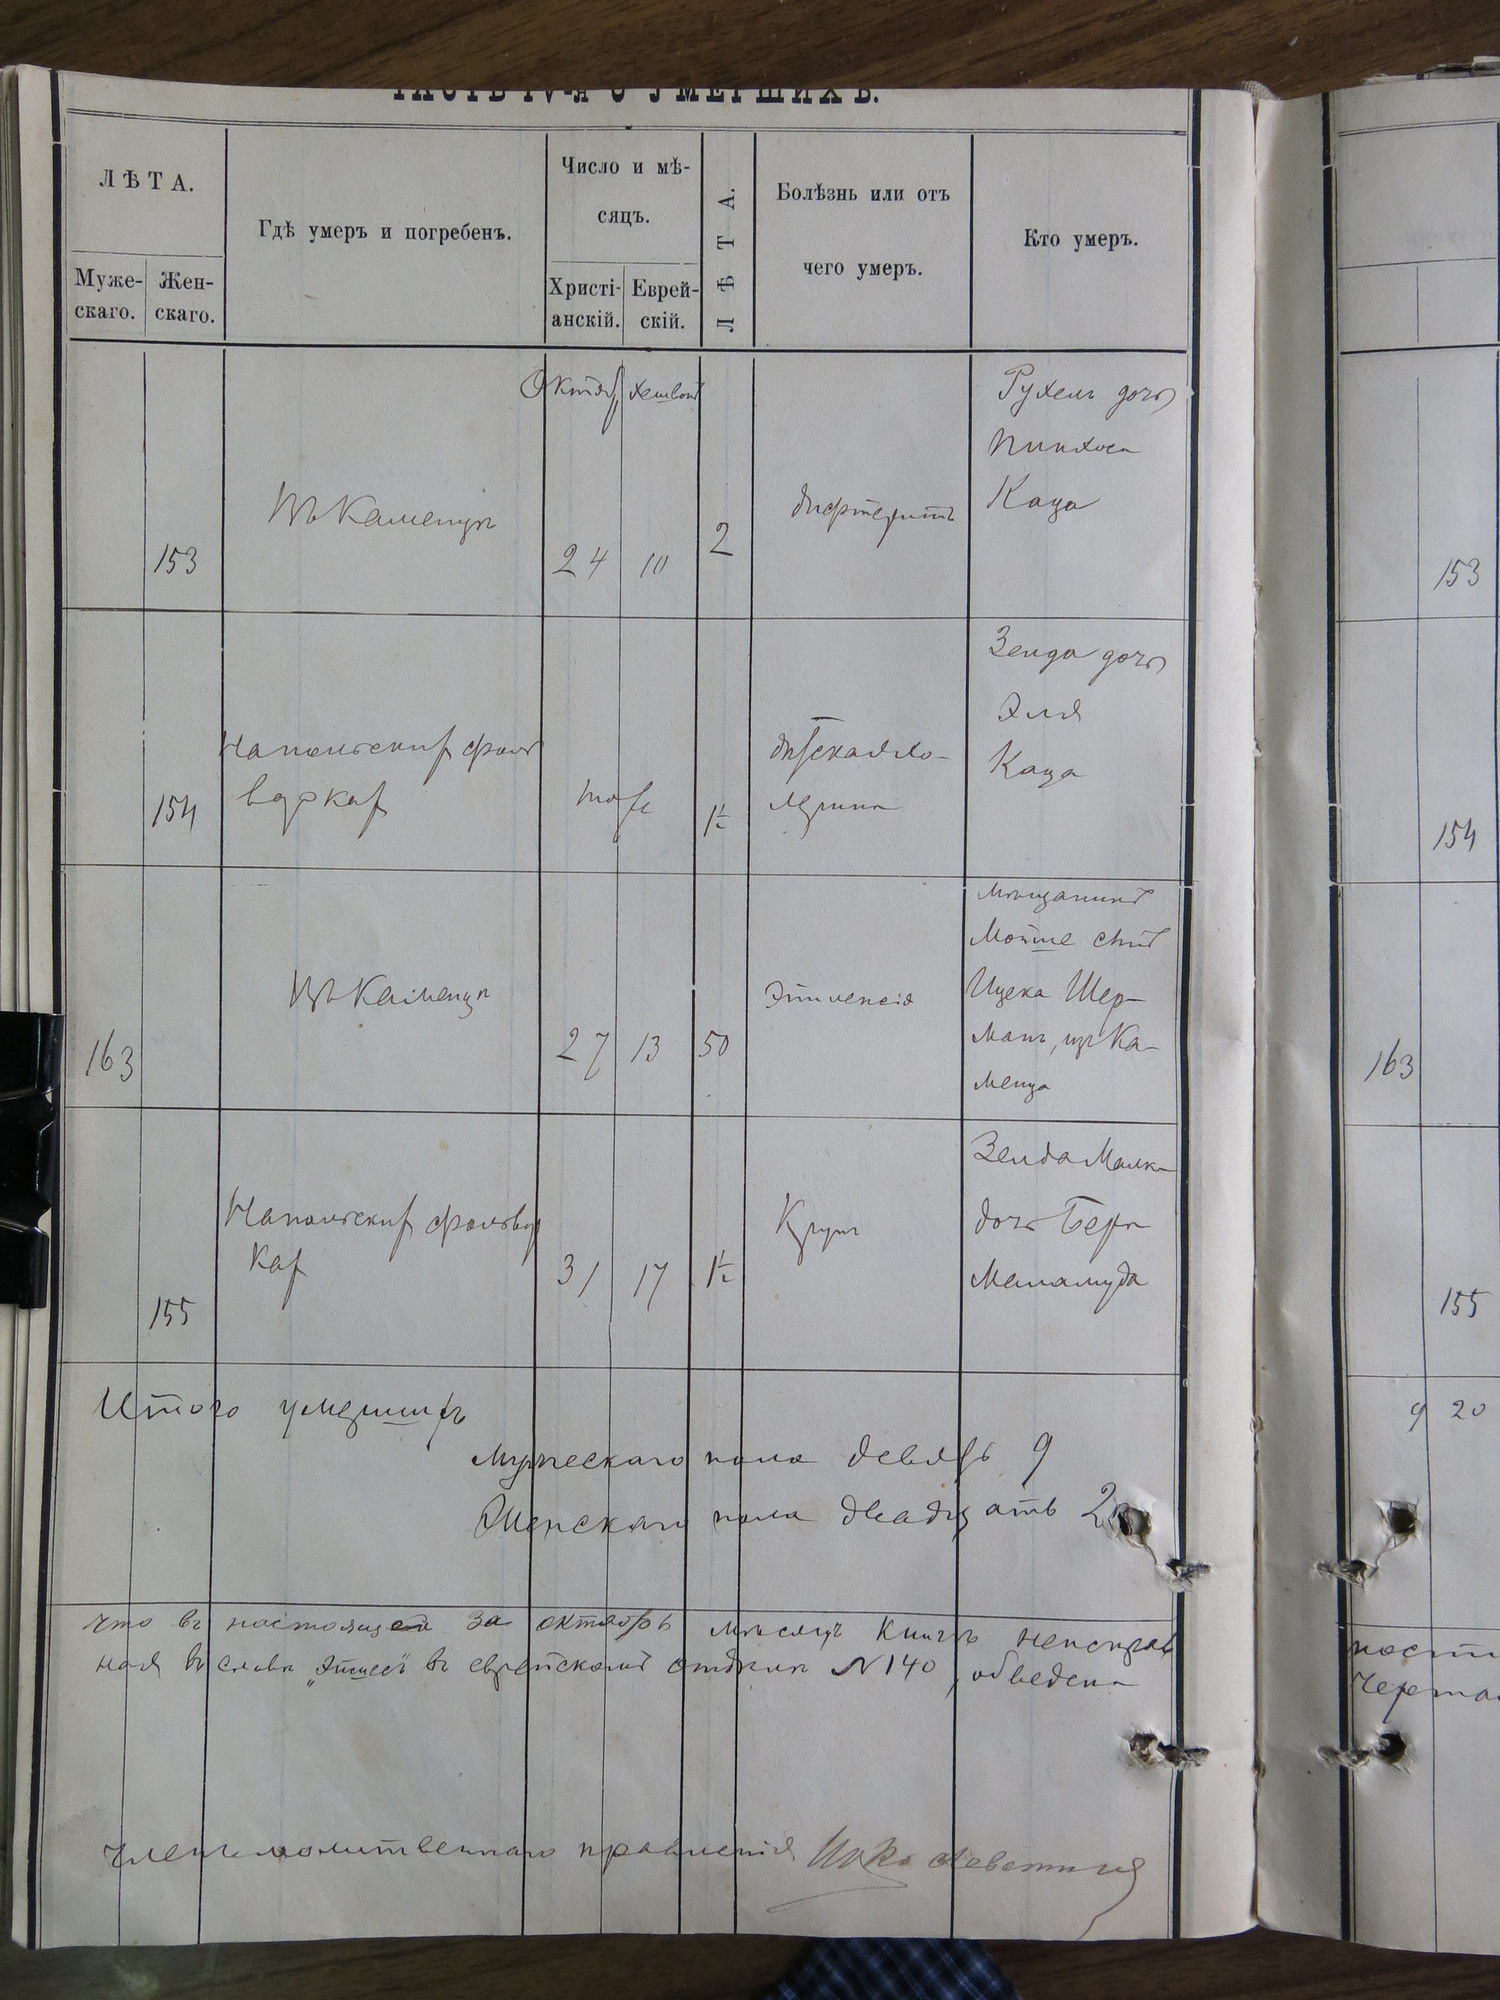 ЧАСТЬ IV-я О УМЕРШИХЪ.
ЛѢТА.
Муже-
скаго.
Жен-
скаго.
Гдѣ умеръ и погребенъ.
Число и мѣ-
сяцъ.
Христі-
анскій.
Еврей-
скій.
ЛѢТА.
Болѣзнь или отъ
чего умеръ.
Кто умеръ.
153
Въ Каменцѣ
Октябр
24
Хешвон
10
2
дифтеритъ
Рухель дочь
Пинхоса
Каца
154
На польских фоль
варках
тоже
1/2
дѣтская хо-
лерина
Зелда дочь
Эля
Каца
163
Въ Каменцѣ
27
13
50
Эпилепсія
мѣщанинъ
Мойше сынъ
Ицека Шер-
манъ, изъ Ка-
менца
155
На польских фольвар
ках
31
17
1/2
Крупъ
Зелда Малка
дочь Бера
Меламуда
Итого умершихъ
мужескаго пола девять 9
Женскаго пола двадцать 20
Что въ настоящей за октябрь мѣсяцъ книгѣ неисправ
ная въ словѣ въ еврейскомъ отдѣлѣ № 140, обведена
Членъ молитвеннаго правленія
153
154
163
155
9 20